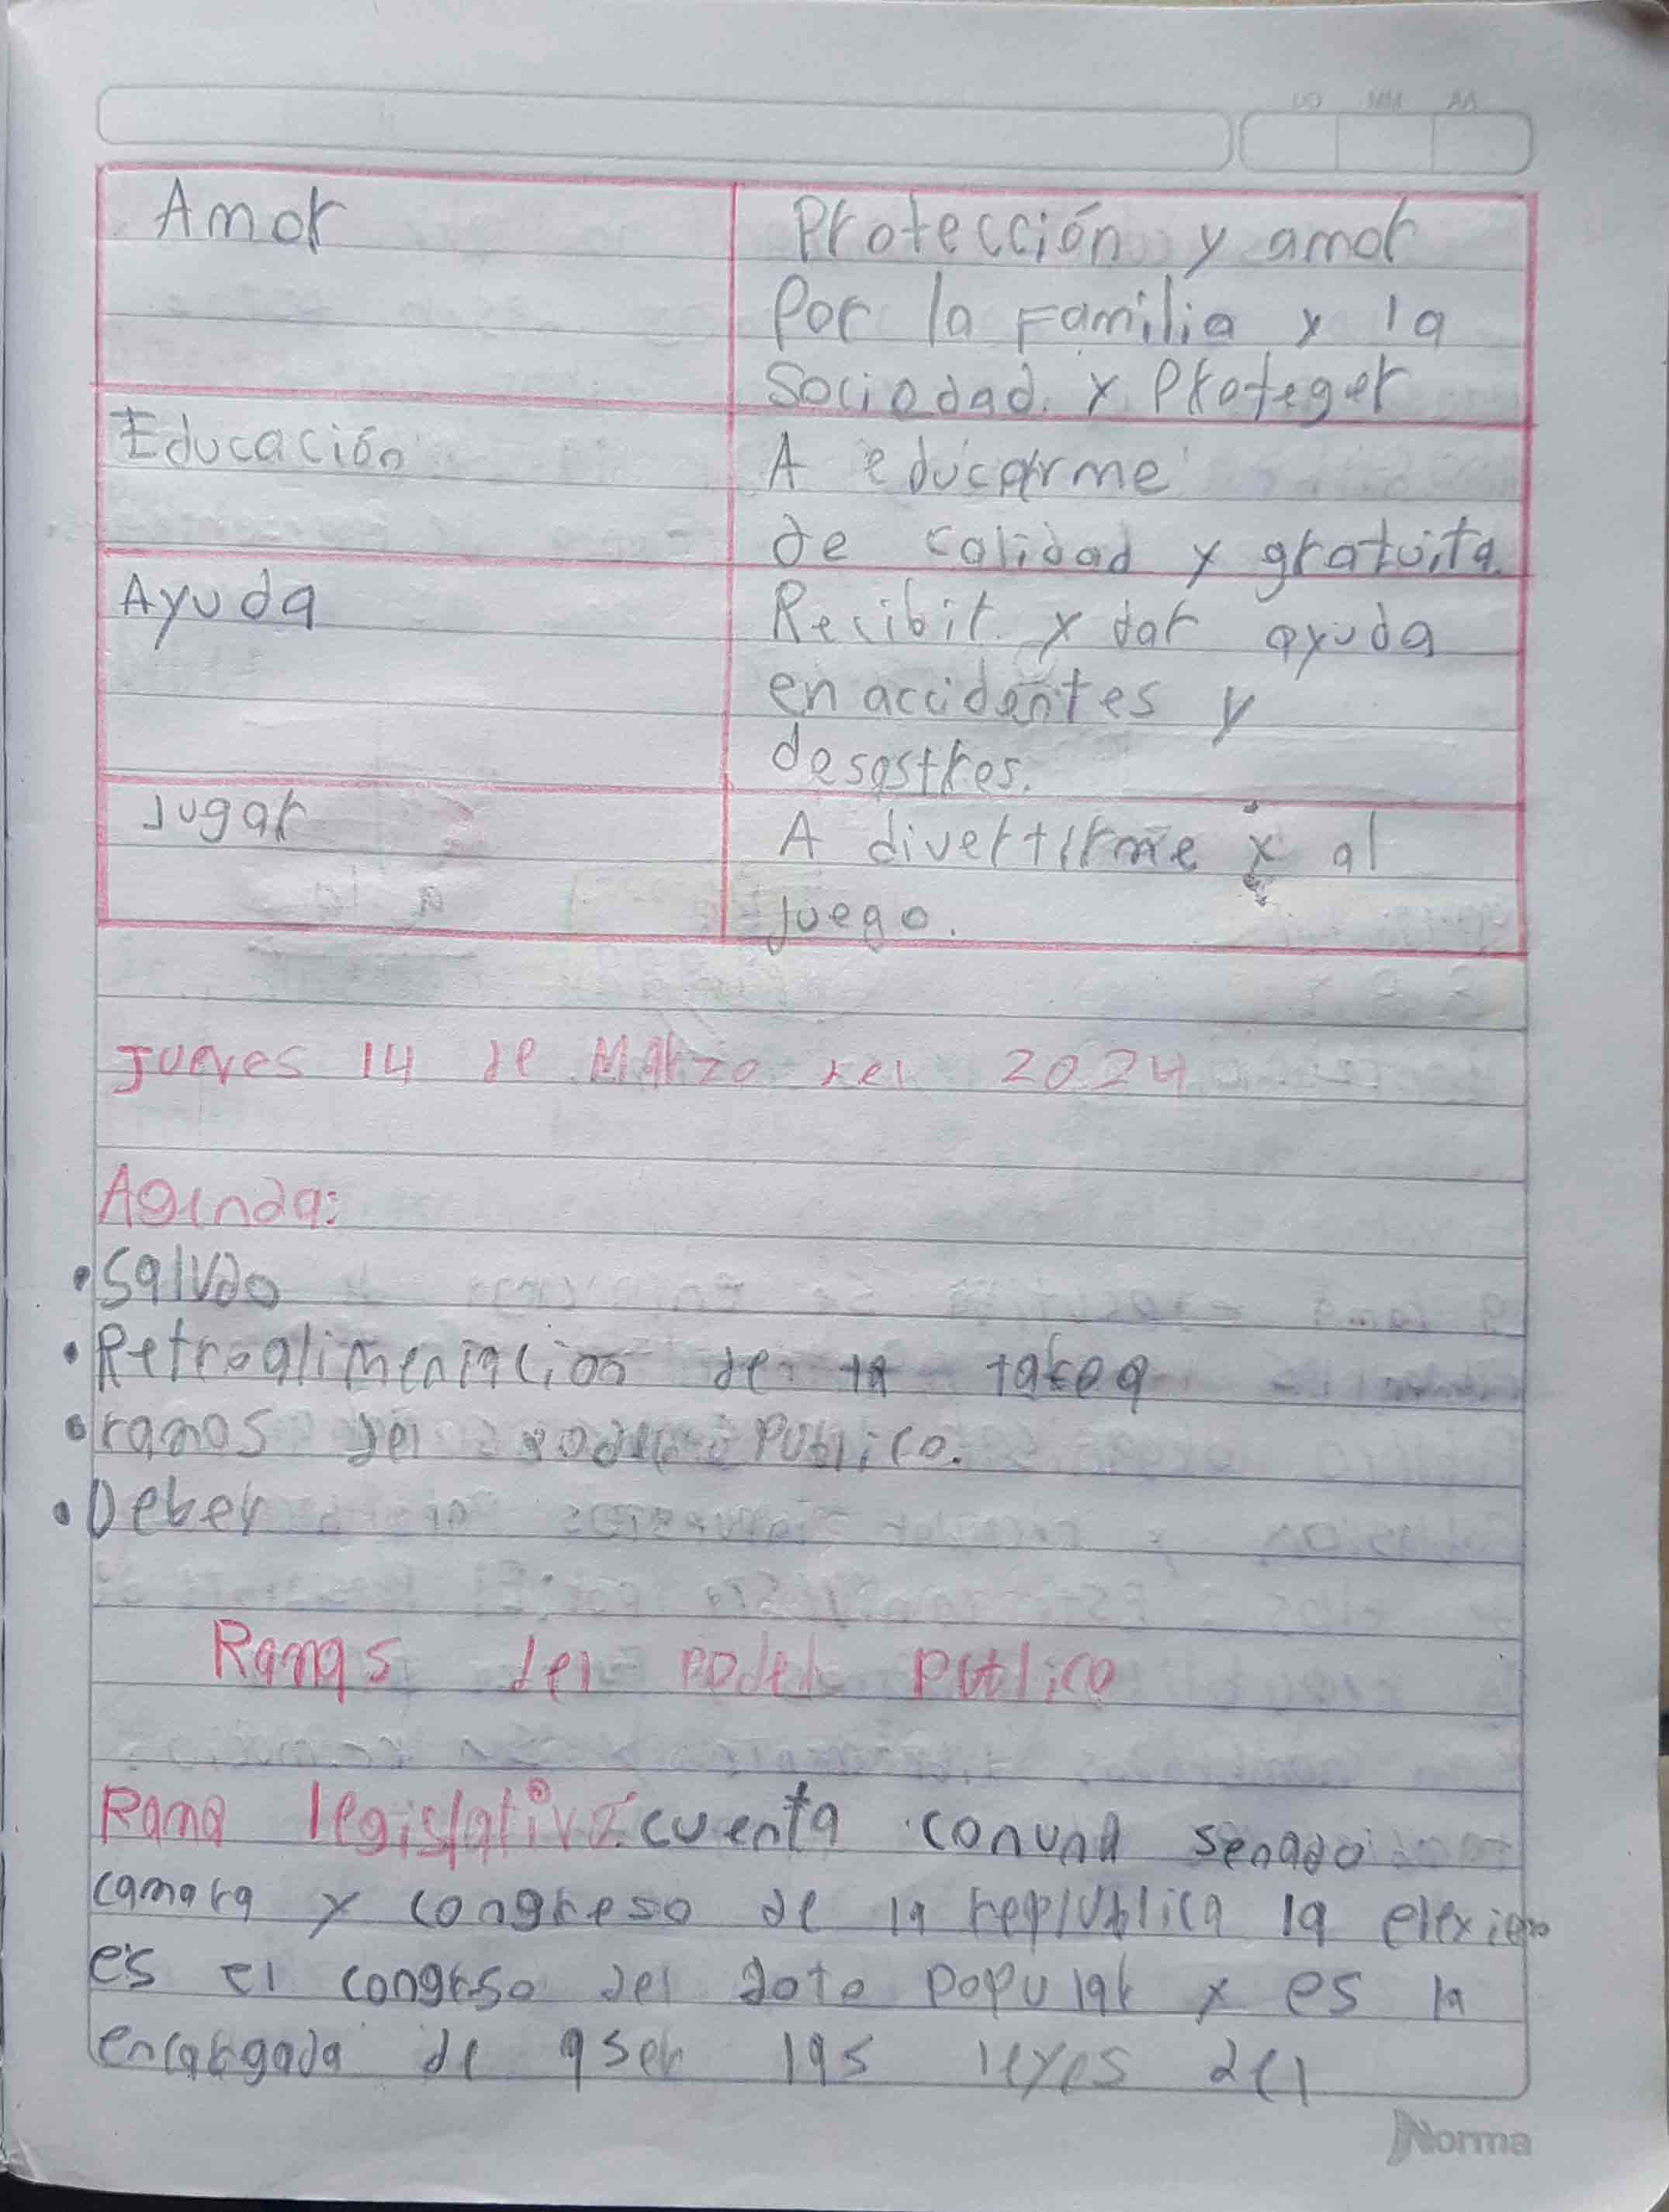 Amor
Protección y amor
Por la Familia y la
Sociedad. y Proteger
Educación
A educarme
de calidad y gratuita.
Ayuda
Recibir y dar ayuda
en accidentes y
desastres.
Jugar
A divertirme y al
juego.
Jueves 14 de Marzo del 2024
Aginda:
• Saludo
• Retroalimentacion de la tarea
• ramas del poder Publico.
• Deber
Ramas del poder Publico
Rama legislativa: cuenta conuna senado
camara y congreso de la republica la elexion
es el congrso del popular y es la
encargada de aser las leyes del
Norma